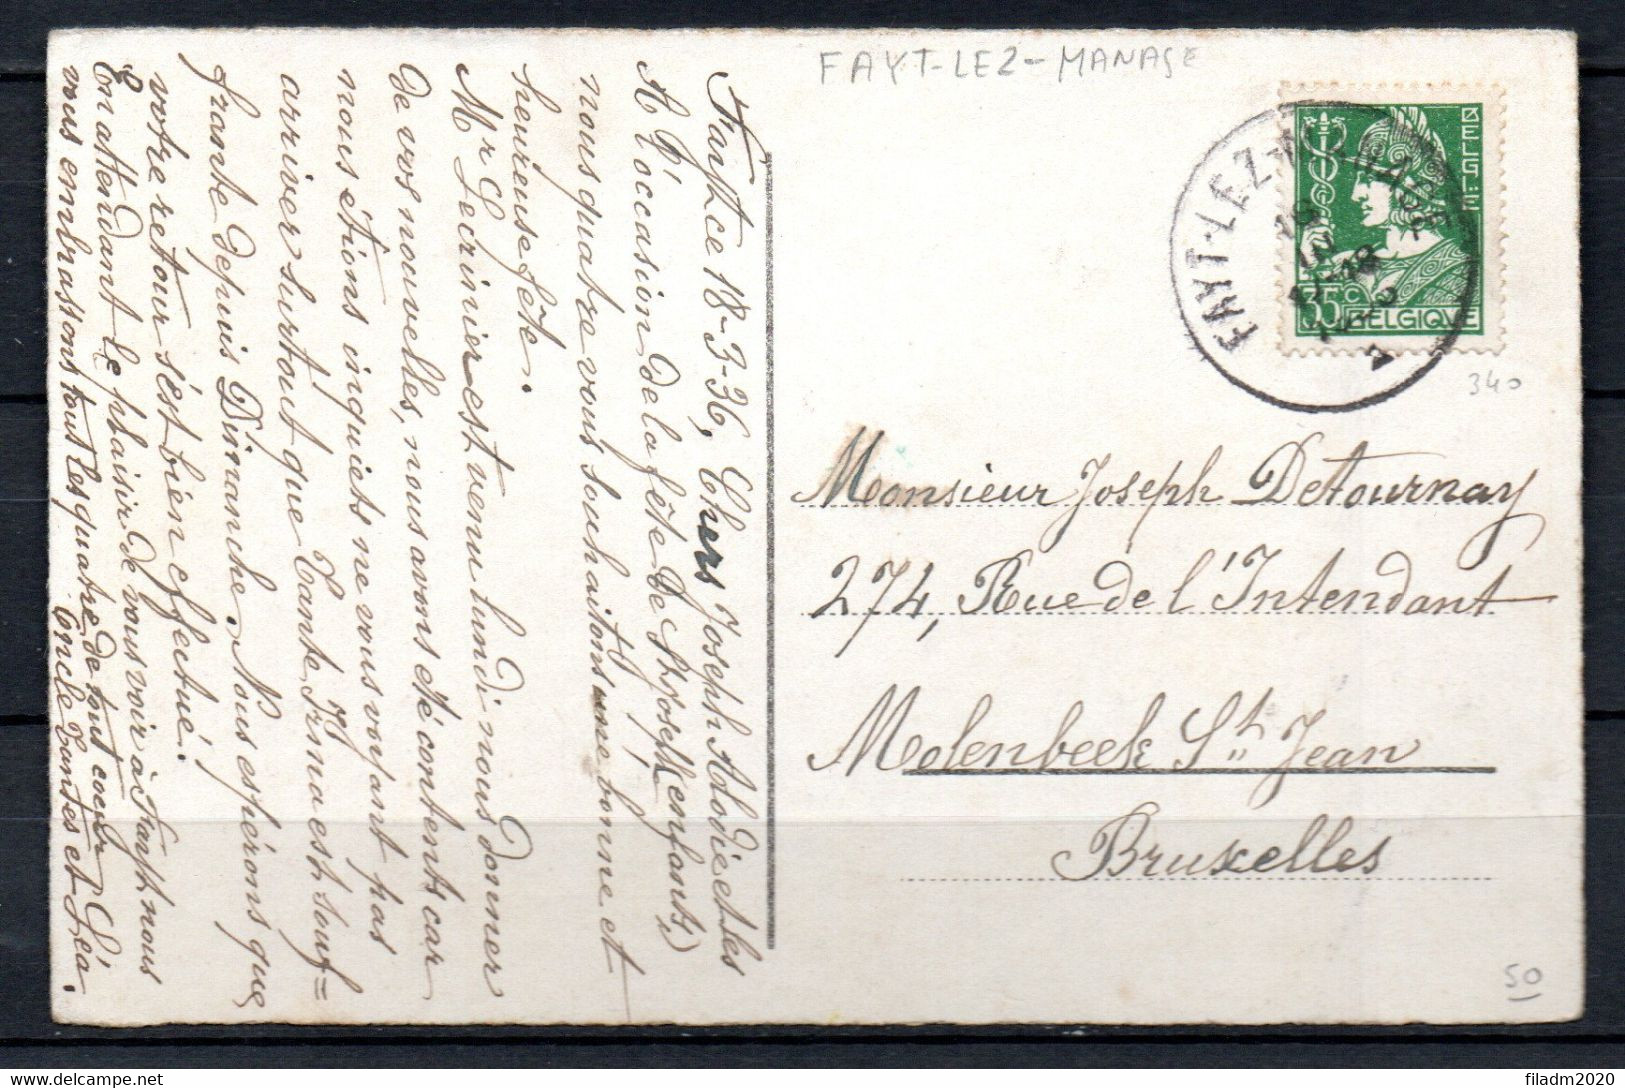 FAYT-LEZ-MANAGE
Fayt, ce 18-3-36, Chers Joseph Alodie et les
A l'occasion de la fête de St Joseph (enfants,)
nous quatre vous souhaitons une bonne et
heureuse fête.
Mr Lecrinier est venu lundi nous donner
de vos nouvelles, nous avons été contents car
nous étions inquiets ne vous voyant pas
arriver surtout que Tante Irma est souf=
frante depuis Dimanche. Nous espérons que
votre retour s'est bien effectué.
En attendant le plaisir de vous voir à Fayt nous
vous embrassons tout les quatre de tout coeur
Oncle Tantes et Léa.
BELGIË
35 c
BELGIQUE
FAYT-LEZ-MANAGE
340
Monsieur Joseph Detournay
274, Rue de l'Intendant
Molenbeek St Jean
Bruxelles
50
delcampe.net
filadm2020